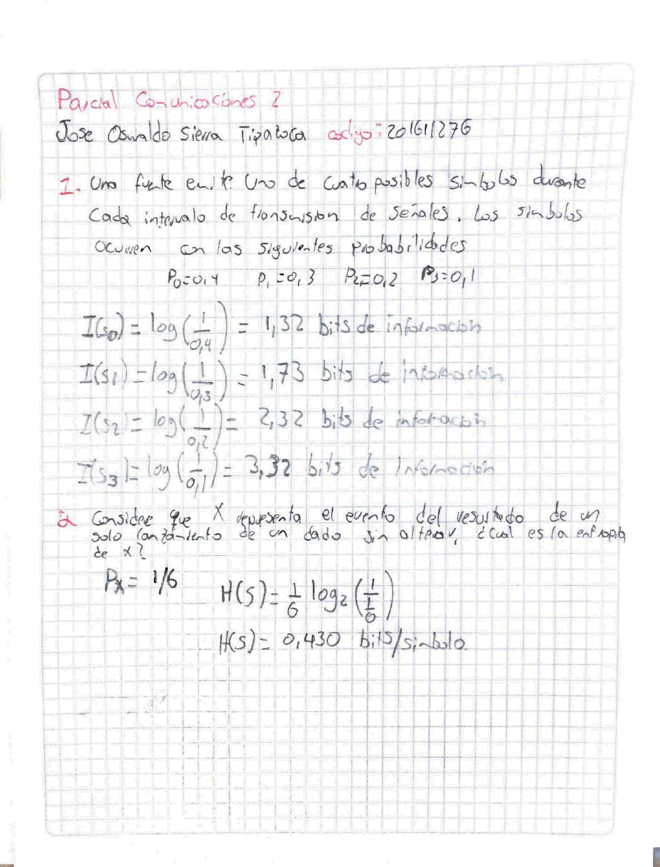 Parcial Comunicaciones 2
Jose Oswaldo Sierra Tipatoca codigo: 201611276
1. Una fuente emite uno de cuatro posibles simbolos durante
cada intervalo de transmision de señales. Los simbolos
ocurren con las siguientes probabilidades
P0=0,4 P1=0,3 P2=0,2 P3=0,1
I(s0) = log(1/0,4) = 1,32 bits de informacion
I(s1) = log(1/0,3) = 1,73 bits de informacion
I(s2) = log(1/0,2) = 2,32 bits de informacion
I(s3) = log(1/0,1) = 3,32 bits de Informacion
2 Considere que X representa el evento del resultado de un
solo lanzamiento de un dado sin alterar, ¿cual es la entropia
de x?
Px = 1/6 H(S) = 1/6 log2 (1/(1/6))
H(S) = 0,430 bits/simbolo.